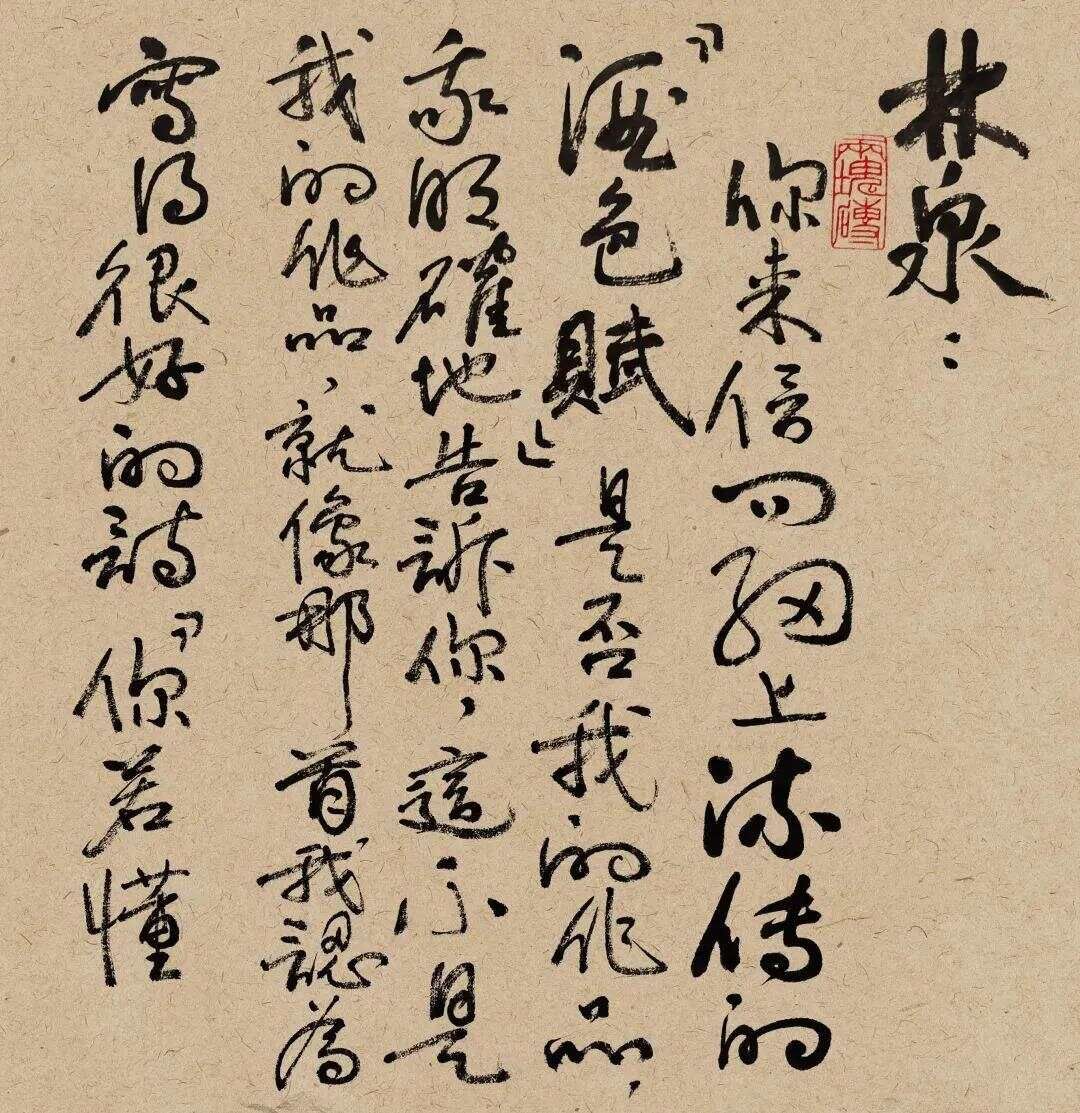 林泉：
你来信問網上流傳的
『酒色賦』是否我的作品，
我明確地告訴你，這不是
我的作品，就像那首我認為
寫得很好的詩『你若懂